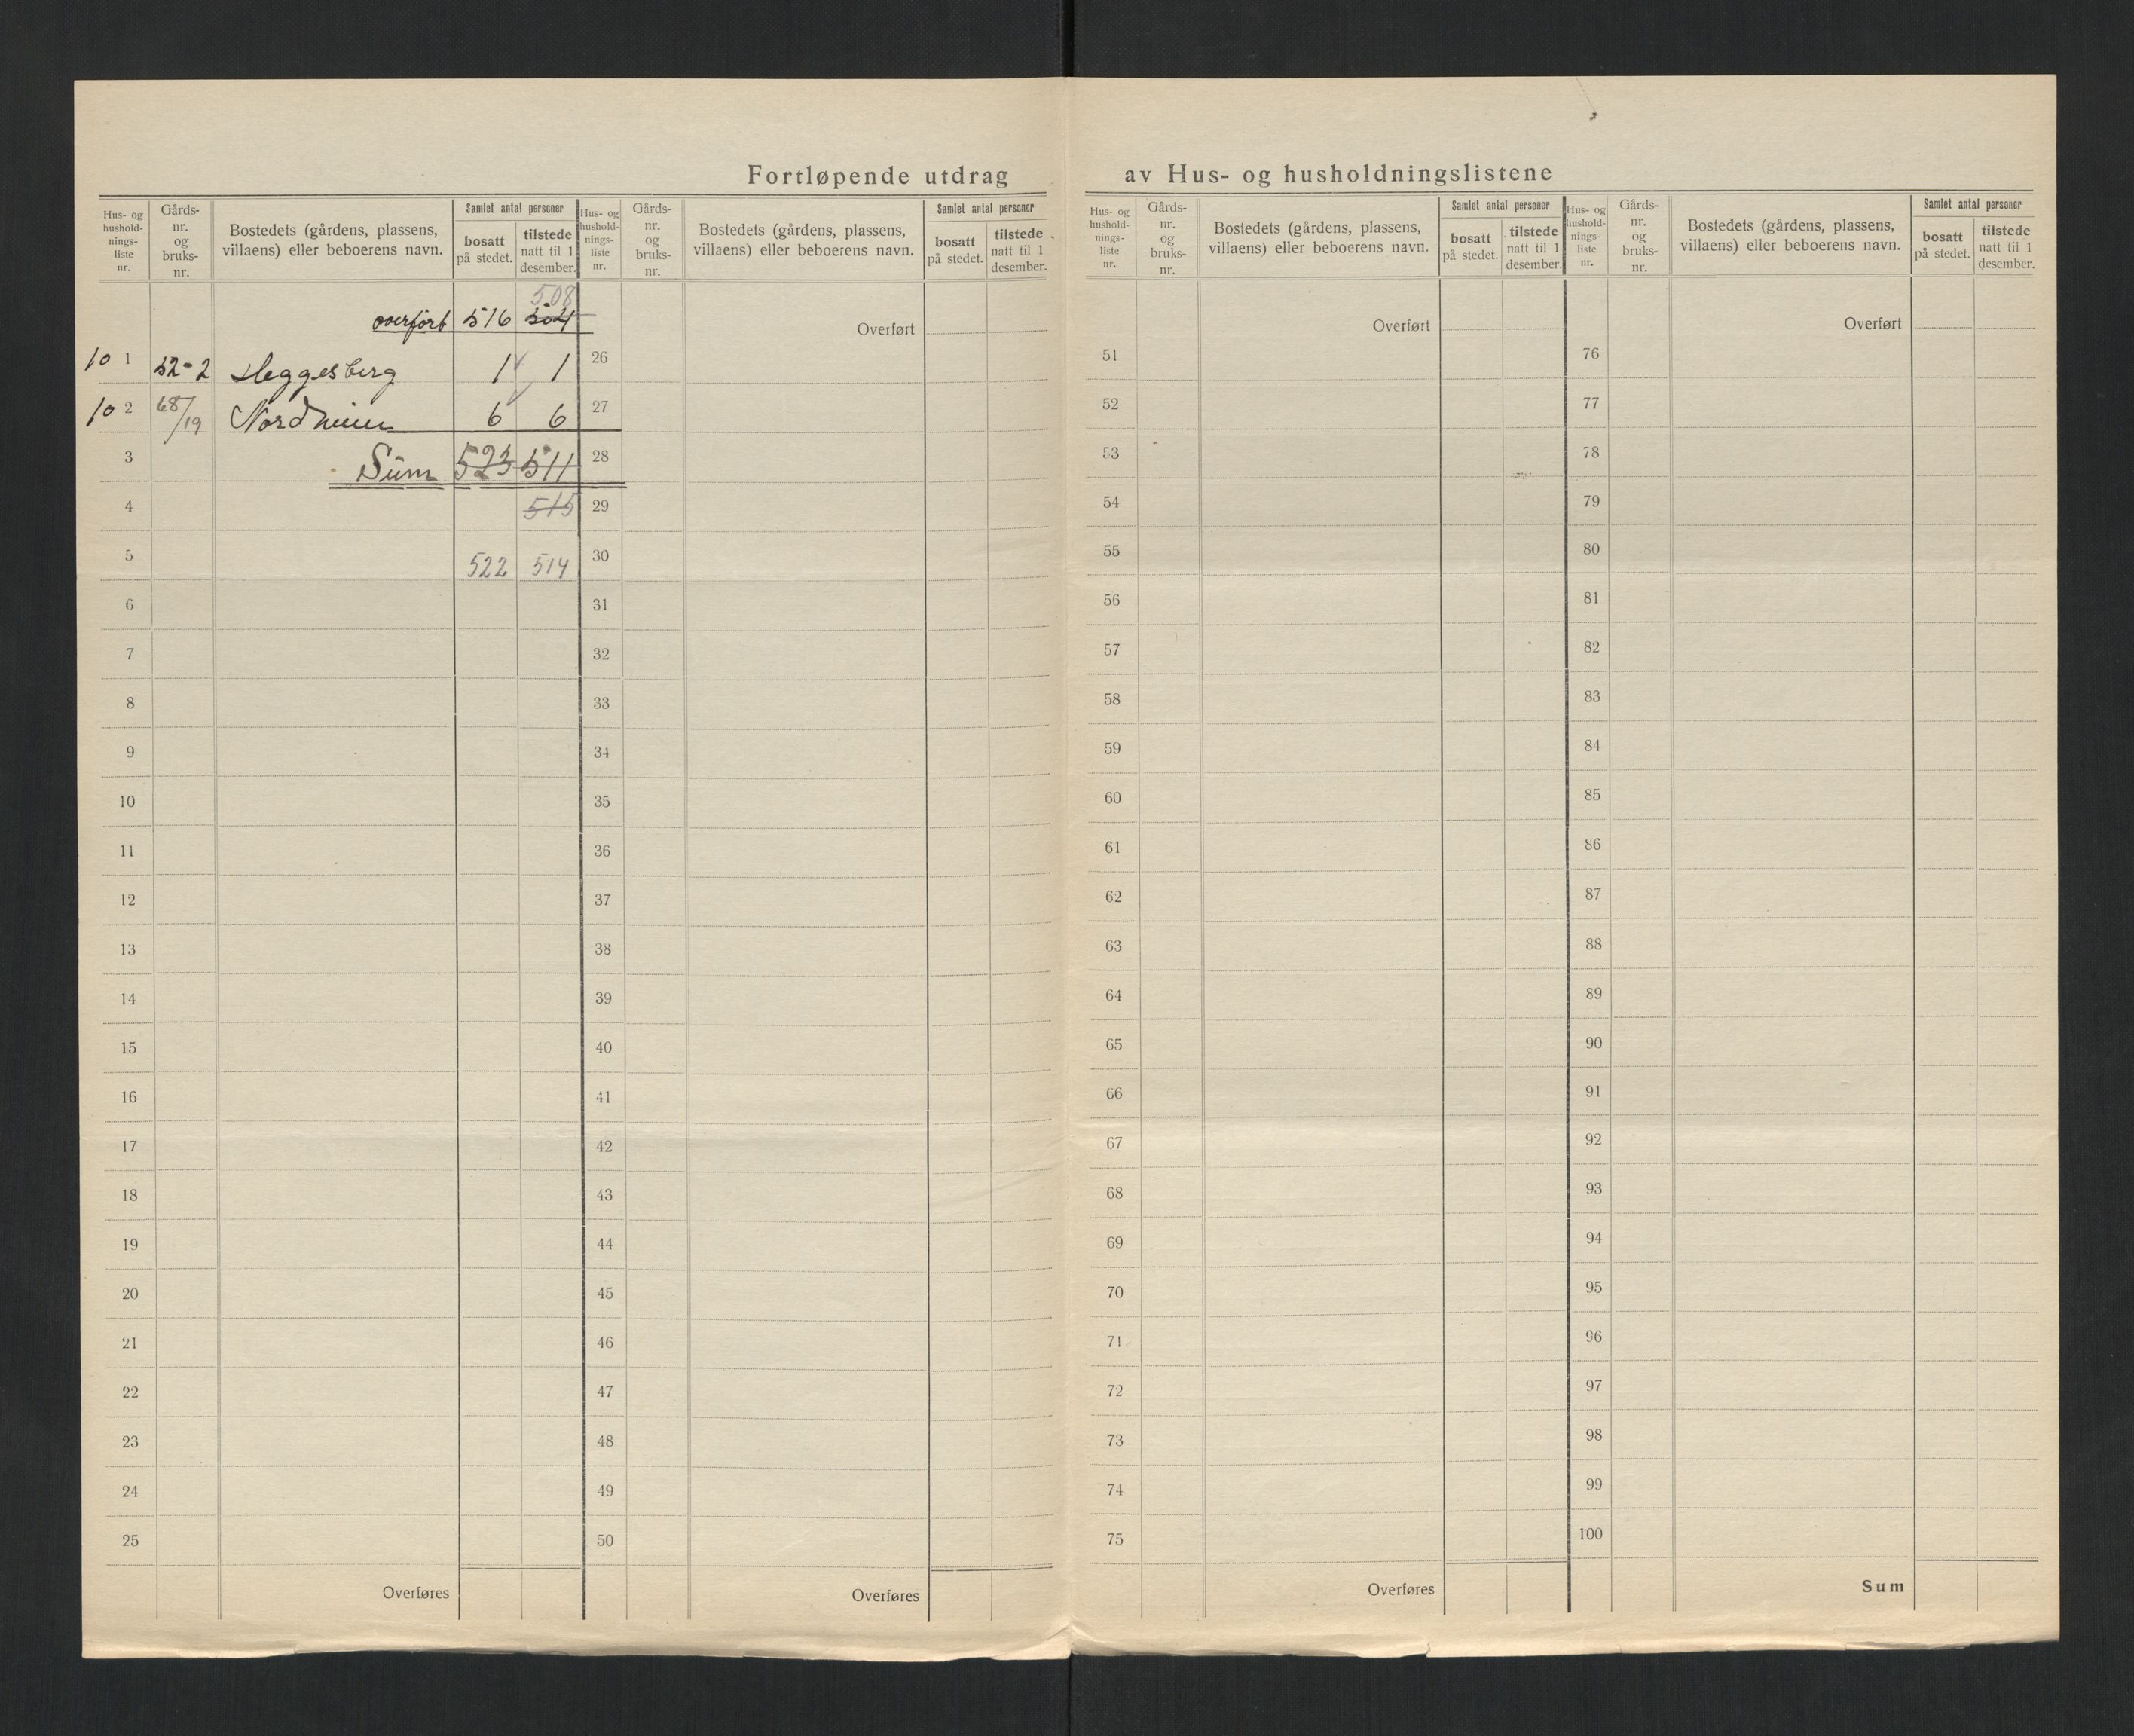 Fortløpende utdrag av Hus- og husholdningslistene
Hus- og hushold- nings- liste nr.
Gårds- nr. og bruks- nr.
Bostedets (gårdens, plassens, villaens) eller beboerens navn.
Samlet antal personer
bosatt på stedet.
tilstede natt til 1 desember.
Hus- og hushold- nings- liste nr.
Gårds- nr. og bruks- nr.
Bostedets (gårdens, plassens, villaens) eller beboerens navn.
Samlet antal personer
bosatt på stedet.
tilstede natt til 1 desember.
Hus- og hushold- nings- liste nr.
Gårds- nr. og bruks- nr.
Bostedets (gårdens, plassens, villaens) eller beboerens navn.
Samlet antal personer
bosatt på stedet.
tilstede natt til 1 desember.
Hus- og hushold- nings- liste nr.
Gårds- nr. og bruks- nr.
Bostedets (gårdens, plassens, villaens) eller beboerens navn.
Samlet antal personer
bosatt på stedet.
tilstede natt til 1 desember.
508
overført 516 504
10 1 52-2 Heggesberg 1 1
10 2 68/19 Nordheim 6 6
3 Sum 523 511
4 515
5 522 514
6
7
8
9
10
11
12
13
14
15
16
17
18
19
20
21
22
23
24
25
Overføres
Overført
26
27
28
29
30
31
32
33
34
35
36
37
38
39
40
41
42
43
44
45
46
47
48
49
50
Overføres
Overført
51
52
53
54
55
56
57
58
59
60
61
62
63
64
65
66
67
68
69
70
71
72
73
74
75
Overføres
Overført
76
77
78
79
80
81
82
83
84
85
86
87
88
89
90
91
92
93
94
95
96
97
98
99
100
Sum